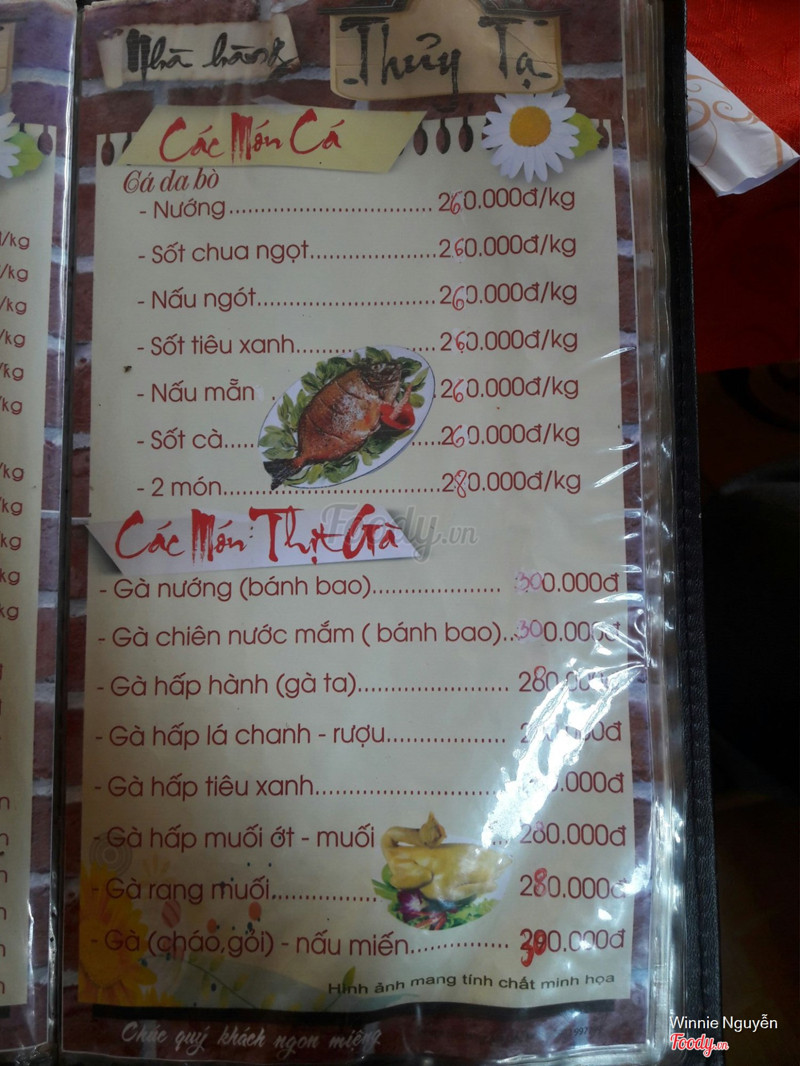 Nhà hàng
Thủy Tạ
Các Món Cá
Cá da bò
- Nướng................................ 260.000đ/kg
- Sốt chua ngọt....................260.000đ/kg
- Nấu ngót............................260.000đ/kg
- Sốt tiêu xanh......................260.000đ/kg
- Nấu mẳn . .260.000đ/kg
- Sốt cà..... .....260.000đ/kg
- 2 món..................................280.000đ/kg
Các Món Thịt Gà
Foody.vn
- Gà nướng (bánh bao)..................... 300.000đ
- Gà chiên nước mắm ( bánh bao)..300.000đ
- Gà hấp hành (gà ta)........................ 280.000đ
- Gà hấp lá chanh - rượu...................
- Gà hấp tiêu xanh.............................. .000đ
- Gà hấp muối ớt - muối ... 280.000đ
- Gà rang muối................ 280.000đ
- Gà (cháo,gỏi) - nấu miến............... 300.000đ
Hình ảnh mang tính chất minh họa
Chúc quý khách ngon miệng
Winnie Nguyễn
Foody.vn
/kg
/kg
/kg
/kg
/kg
/kg
/kg
/kg
kg
kg
kg